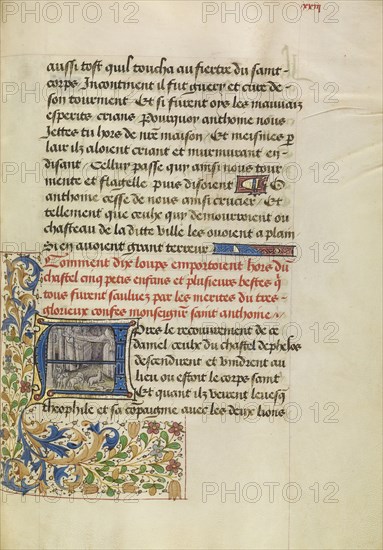 xxiij
aussi tost quil toucha au fiertre du saint
corps Incontinent il fut guery et cure de
son tourment Et si furent oys les mauuaiz
esperits crians Pourquoy anthome nous
Iettes tu hors de nre maison Et mesmes p
lair ilz aloient criant et murmurant en
disant Celluy passe quy ainsi nous tour
mente et flagelle Puis disoient O
anthome cesse de nous ainsi crucier Et
tellement que ceulx quy demouroient ou
chasteau de la ditte ville les ouoient a plain
Sien auoient grant terreur
Comment dix loups emportoient hors du
chastel cinq petis enfans et plusieurs bestes q
tous furent sauluez par les merites du tres
glorieux confes monseignr saint anthome
Apres le recouurement de ce
daniel ceulx du chastel dephelos
descendirent et vindrent au
lieu ou estoit le corps saint
Et quant ilz veirent leuesq
theophile et sa compaignie auec les deux lions
PHOTO 12
PHOTO 12
PHOTO 12
PHOTO 12
PHOTO 12
PHOTO 12